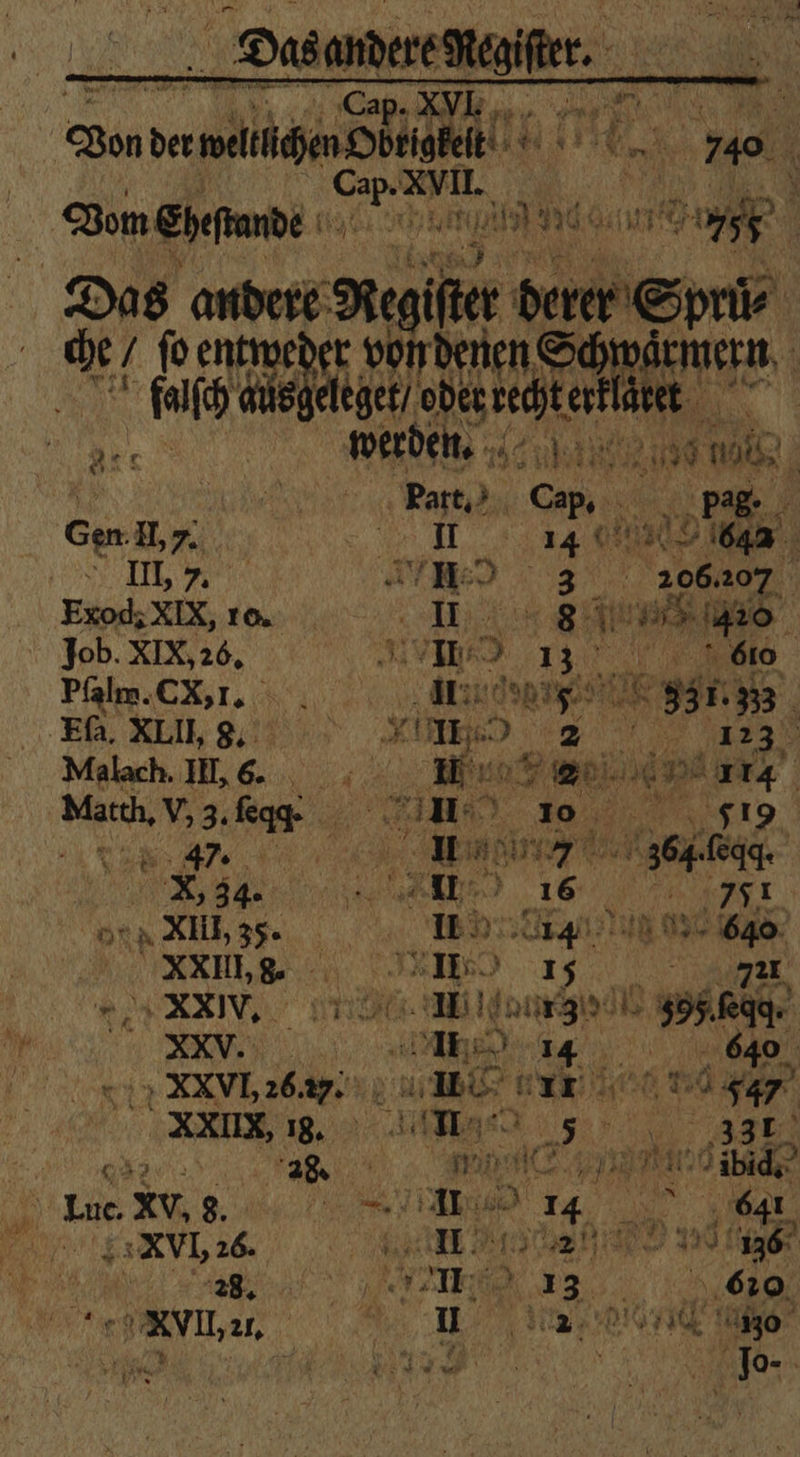 Das andere Regiſter.
Cap. XVI.
Von der weltlichen Obrigkeit 740
Cap. XVII.
Vom Eheſtande
Das andere Regiſter derer Spruͤ-
che / ſo entweder von denen Schwaͤrmern
falſch ausgeleget / oder recht erklaͤret
werden.
Part. Cap. pag.
Gen. II, 7. II 14 642
III, 7. II 3 206.207
Exod. XIX, 10. II 8 420
Job. XIX, 26. II 13 610
Pſalm. CX, 1. II 5 331.333
Eſa. XLII, 8. II 2 123
Malach. III, 6. II 2 114
Matth. V, 3. ſeqq. II 10 519
47. II 7 364.ſeqq.
X, 34. II 16 751
XIII, 35. II 14 640
XXIII, 8. II 15 721
XXIV. II 3 395.ſeqq.
XXV. II 14 640
XXVI, 26.27. II 11 547
XXIIX, 18. II 5 331
28. ibid.
Luc. XV, 8. II 14 641
XVI, 26. II 2 136
28. II 13 620
XVII, 21. II 2 130
Jo-